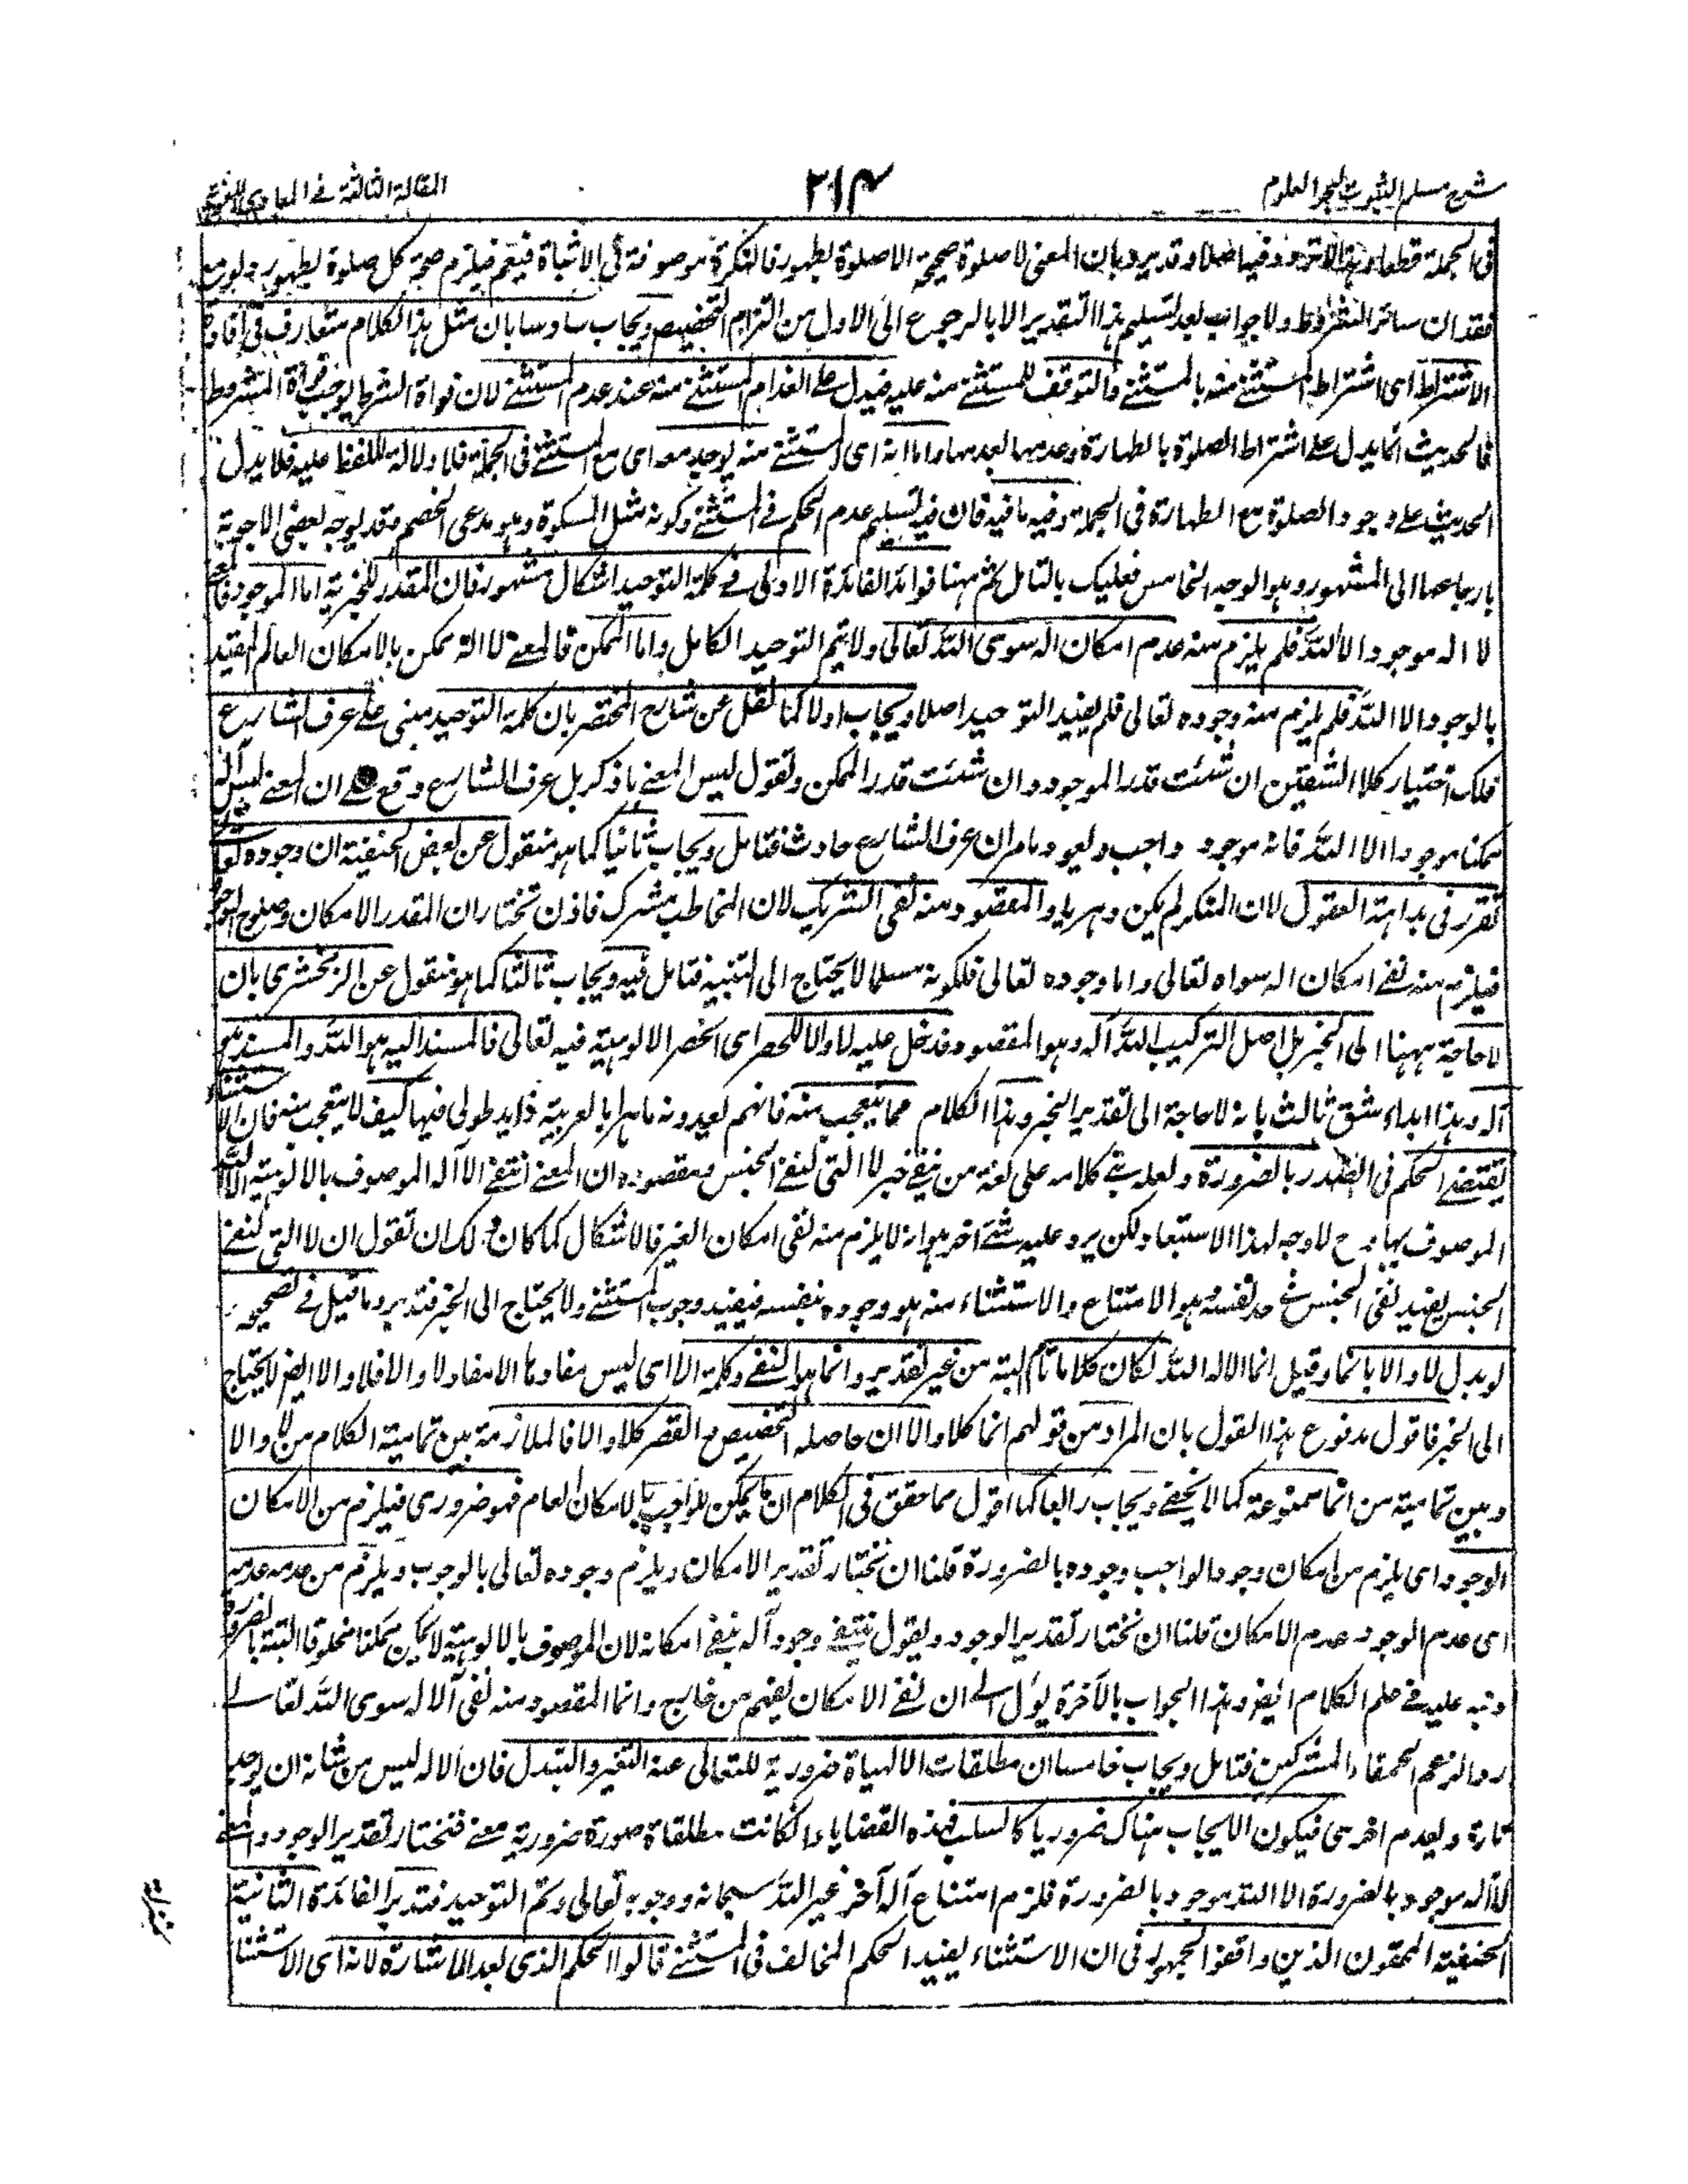 شرح مسلم الثبوت لبحر العلوم
٢١٤
المقالة الثالثة في المبادي اللغوية
في الجملة قطعا وهذا لا تردد فيها اصلا وقد يرد بان المعنى لا صلوة صحيحة الا صلوة بطهور فالنكرة موصوفة في الاثباة فيعم فيلزم صحة كل صلوة بطهور ولو مع
فقدان سائر الشروط ولا جواب بعد تسليم هذا التقدير الا بالرجوع الى الاول من التزام التخصيص ويجاب سادسا بان مثل هذا الكلام متعارف في افادة
الاشتراط اى اشتراط المستثنى منه بالمستثنى والتوقف للمستثنى منه عليه فيدل على انعدام المستثنى منه عند عدم المستثنى لان فواة الشرط يوجب فواة المشروط
فالحديث انما يدل على اشتراط الصلوة بالطهارة وعدمها بعدمها واما انه اى المستثنى منه يوجد معه اى مع المستثنى في الجملة فلا دلالة للفظ عليه فلا يدل
الحديث على وجود الصلوة مع الطهارة في الجملة وفيه ما فيه فان فيه تسليم عدم الحكم في المستثنى وكونه مثل المسكوة وهو مدعى الخصم وقد يوجه بعض الاجوبة
بارجاعها الى المشهور وهو الوجه الخامس فعليك بالتامل ثم ههنا فوائد الفائدة الاولى في كلمة التوحيد اشكال مشهور فان المقدر للخبرية اما الموجود فالمعنى
لا اله موجود الا الله فلم يلزم منه عدم امكان اله سوى الله تعالى ولا يتم التوحيد الكامل واما الممكن فالمعنى لا اله ممكن بالامكان العام المقيد
بالوجود الا الله فلم يلزم منه وجوده تعالى فلم يفيد التوحيد اصلا ويجاب اولا كما نقل عن شارح المختصر بان كلمة التوحيد مبنى على عرف الشارع
فلك اختيار كلا الشقين ان شئت قدر الموجود وان شئت قدر الممكن ونقول ليس المعنى ما ذكر بل عرف الشارع وقع على ان المعنى ليس اله
ممكنا موجودا الا الله فانه موجود واجب ويعود ما مر ان عرف الشارع حادث فتامل ويجاب ثانيا كما هو منقول عن بعض الحنفية ان وجوده تعالى
تقرر في بداهة العقول لان المنكر لم يكن دهريا والمقصود منه نفى الشريك لان المخاطب مشرك فاذن تختار ان المقدر الامكان وصلوح الوجود
فيلزم منه نفى امكان اله سواه تعالى واما وجوده تعالى فلكونه مسلما لا يحتاج الى التنبيه فتامل فيه ويجاب ثالثا كما هو منقول عن الزمخشرى بان
لا حاجة ههنا الى الخبر بل اصل التركيب الله آله وهو المقصود فدخل عليه لا والا للحصر اى الحصر الالوهية فيه تعالى فالمسند اليه هو الله والمسند هو
آله وهذا ابداء شق ثالث بانه لا حاجة الى تقدير الخبر وهذا الكلام مما يتعجب منه فانهم يعدونه ماهرا بالعربية ذا يد طولى فيها كيف لا يتعجب منه فان الاستثناء
يقتضى الحكم في الصدر بالضرورة ولعله بنى كلامه على لغة من ينفى خبر لا التى لنفى الجنس ومقصوده ان المعنى انتفى الا آله الموصوف بالالوهية الا الله
الموصوف بها وح لا وجه لهذا الاستبعاد لكن يرد عليه شئ آخر هو انه لا يلزم منه نفى امكان الغير فالاشكال كما كان ولك ان تقول ان لا التى لنفى
الجنس يفيد نفى الجنس في حد نفسه وهو الامتناع والاستثناء منه هو وجوده بنفسه فيفيد وجوب المستثنى ولا يحتاج الى الخبر فتدبر وما قيل في تصحيحه
لو بدل لا والا بانما وقيل انما الاله الله لكان كلاما تاما البتة من غير تقدير وانما هو النفى وكلمة الا اى ليس مفادها الا مفاد لا والا فلا والا ايضا لا يحتاج
الى الخبر فاقول مدفوع هذا القول بان المراد من قولهم انما كلا والا ان حاصله التخصيص والقصر كلا والا فالملازمة بين تمامية الكلام من لا والا
وبين تمامية من انما ممنوعة كما لا يخفى ويجاب رابعا كما اقول مما حقق في الكلام ان ما يمكن للواجب بالامكان العام فهو ضرورى فيلزم من الامكان
الوجود اى يلزم من امكان وجود الواجب وجوده بالضرورة قلنا ان نختار تقدير الامكان ويلزم وجوده تعالى بالوجوب ويلزم من عدمه عدمه
اى عدم الوجود عدم الامكان قلنا ان نختار تقدير الوجود ونقول ننفى وجود آله بنفى امكانه لان الموصوف بالالوهية لا يكون ممكنا مخلوقا البتة بالضرورة
ونبه عليه في علم الكلام ايضا وهذا الجواب بالآخرة يؤل الى ان نفى الامكان يفهم من خارج وانما المقصود منه نفى آلاله سوى الله تعالى
ردا لزعم الحمقاء المشركين فتامل ويجاب خامسا ان مطلقات الالهياة ضرورية للتعالى عنه التغير والتبدل فان الاله ليس من شانه ان يوجد
تارة ويعدم اخرى فيكون الايجاب هناك ضروريا كالسلب فهذه القضايا وان كانت مطلقاة صورة ضرورية معنى فنختار تقدير الوجود والمعنى
لا آله موجود بالضرورة الا الله موجود بالضرورة فلزم امتناع آله آخر غير الله سبحانه ووجوبه تعالى وتم التوحيد فتدبر الفائدة الثانية
الحنفية المحققون الذين وافقوا الجمهور في ان الاستثناء يفيد الحكم المخالف في المستثنى قالوا الحكم الذى بعد الا اشارة لانه اى الاستثنا